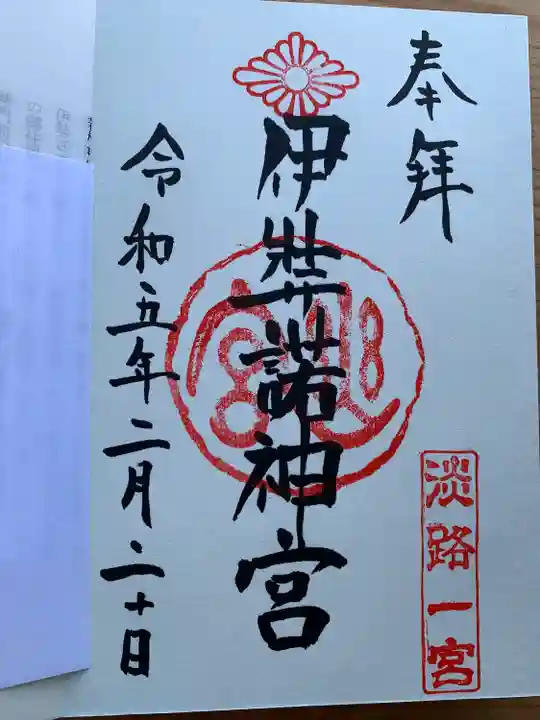 奉拝
伊弉諾神宮
淡路一宮
令和五年二月二十日